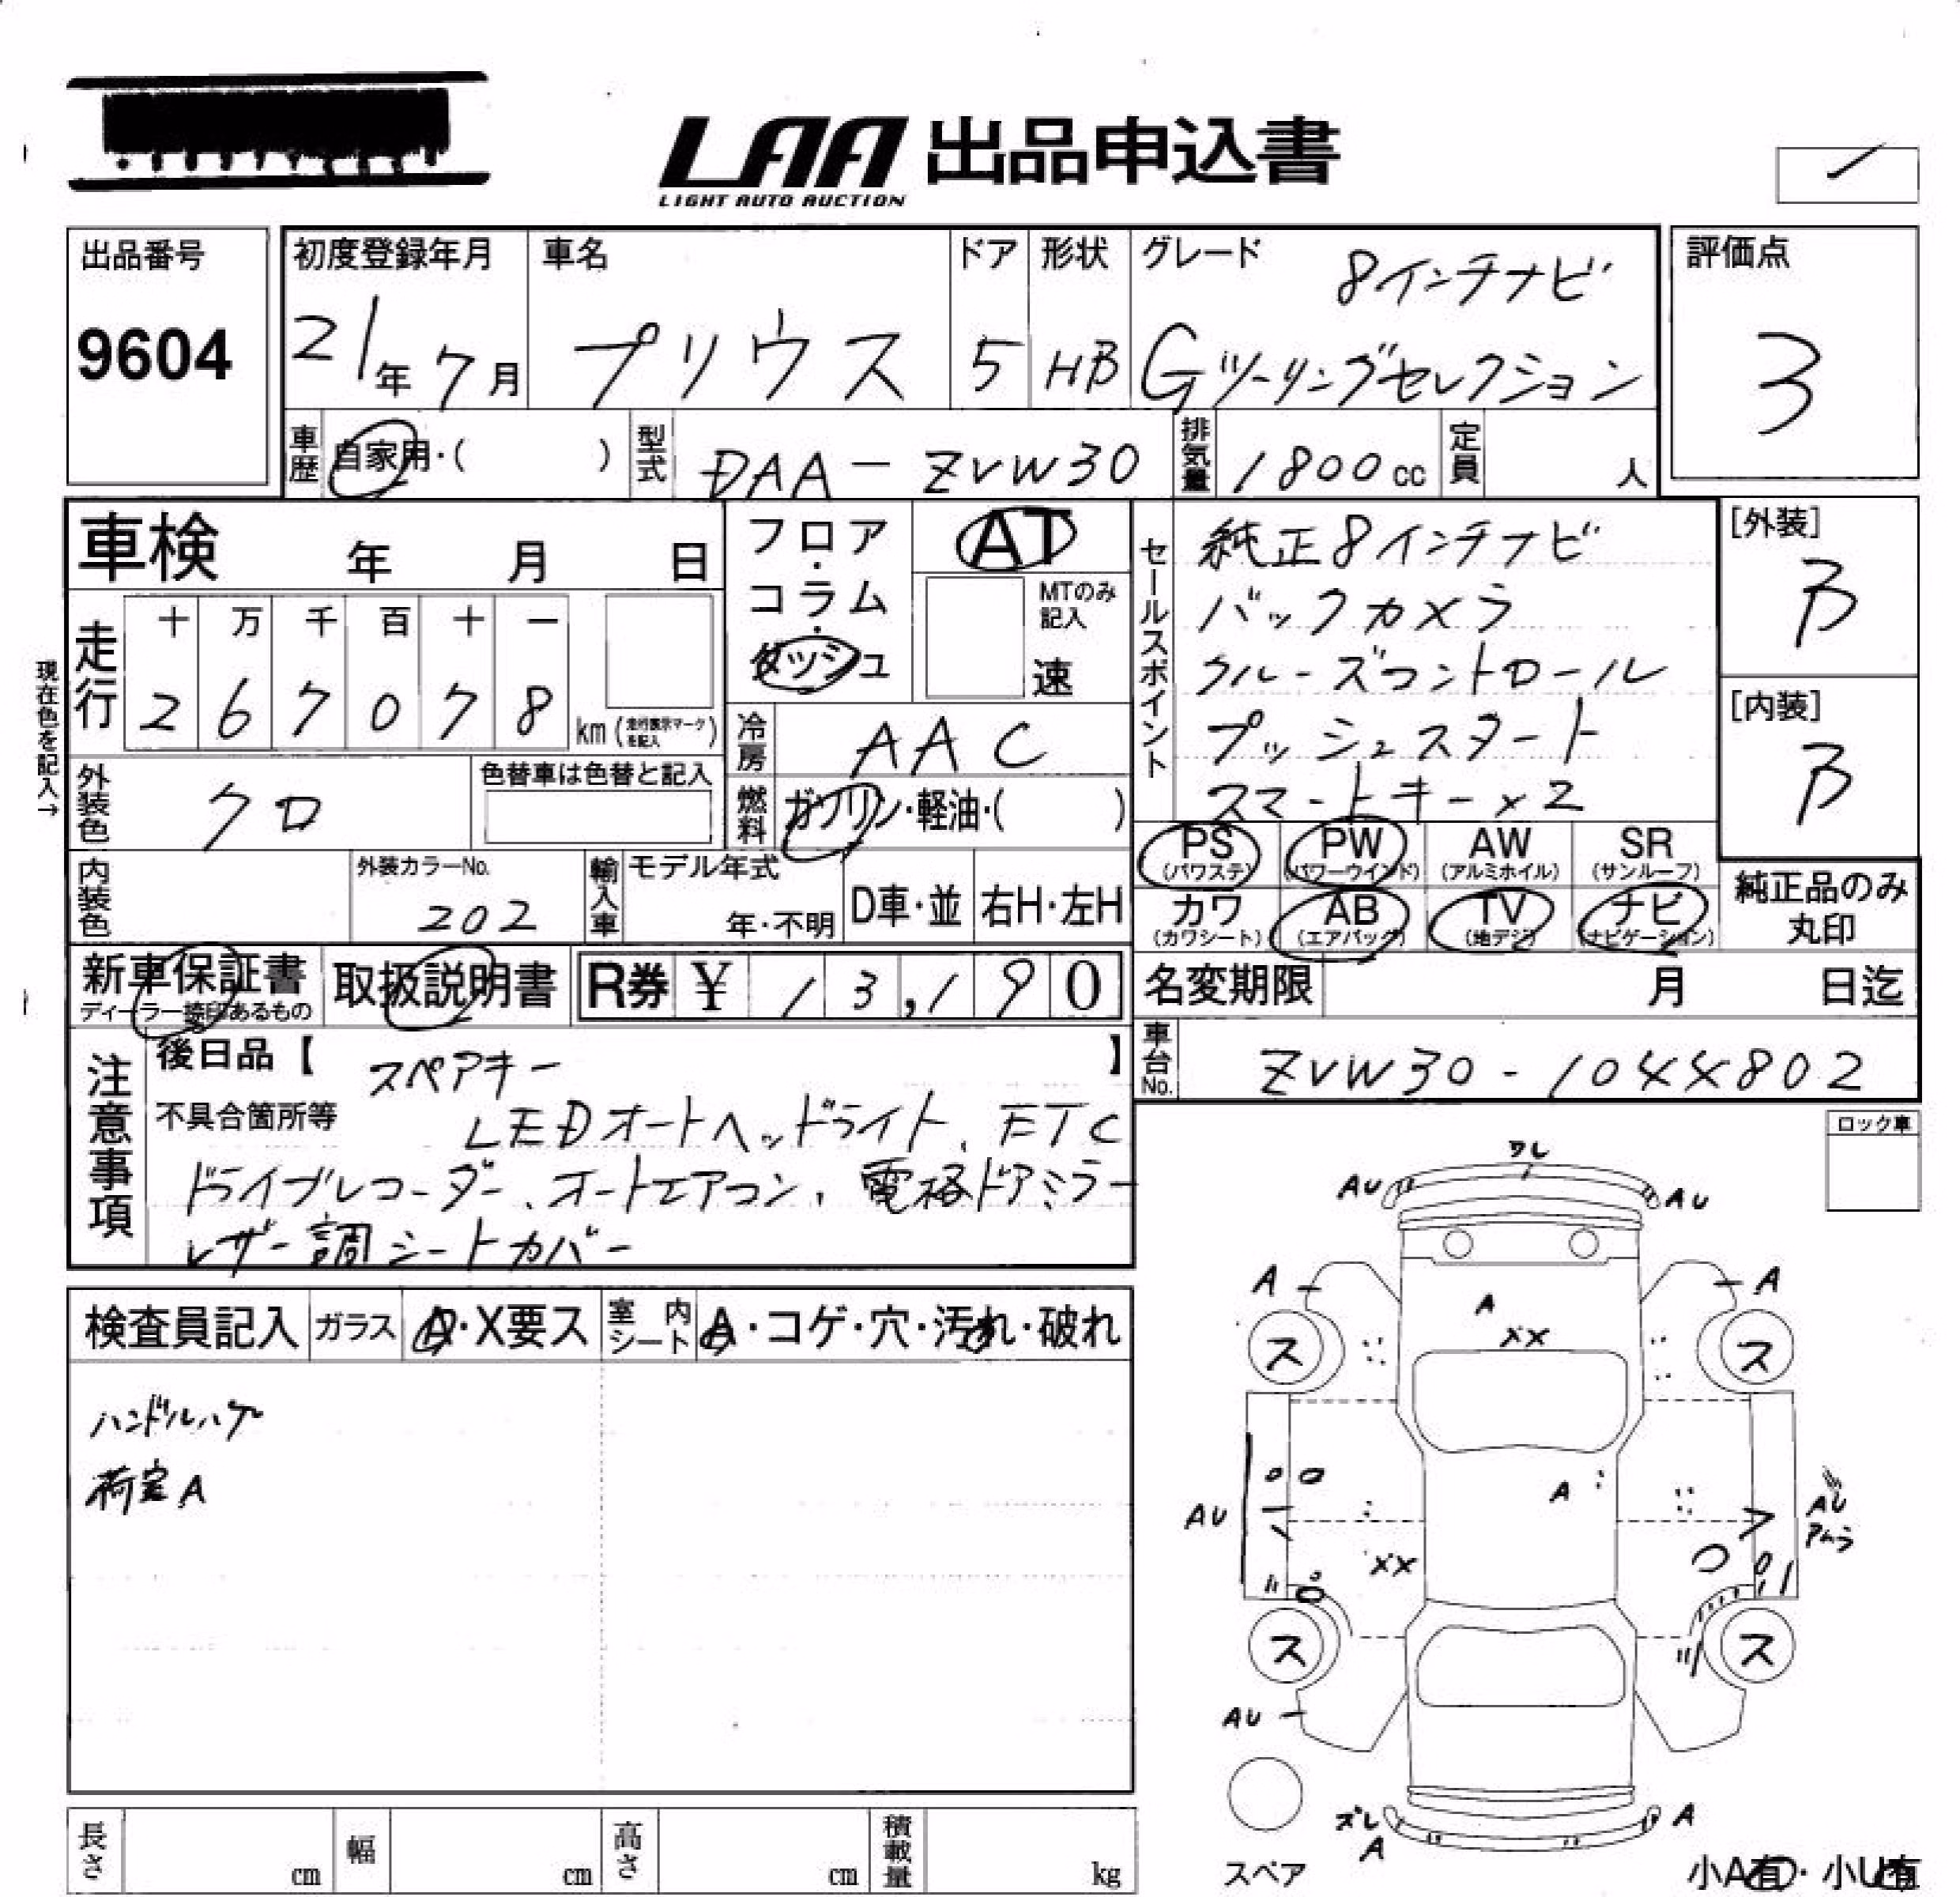 LAA 出品申込書
LIGHT AUTO AUCTION
出品番号
9604
初度登録年月
21年7月
車名
プリウス
ドア
5
形状
HB
グレード
8インチナビ
Gツーリングセレクション
評価点
3
車歴
自家用・( )
型式
DAA-ZVW30
排気量
1800cc
定員
人
車検 年 月 日
フロア・コラム・ダッシュ
AT
MTのみ記入
速
現在色を記入→
走行
十 万 千 百 十 一
2 6 7 0 7 8
km(走行表示マークを記入)
冷房
AAC
燃料
ガソリン・軽油・( )
外装色
クロ
色替車は色替と記入
内装色
外装カラーNo.
202
輸入車
モデル年式
年・不明
D車・並
右H・左H
セールスポイント
純正8インチナビ
バックカメラ
クルーズコントロール
プッシュスタート
スマートキー×2
[外装]
B
[内装]
B
PS
(パワステ)
PW
(パワーウインド)
AW
(アルミホイル)
SR
(サンルーフ)
カワ
(カワシート)
AB
(エアバッグ)
TV
(地デジ)
ナビ
(ナビゲーション)
純正品のみ
丸印
新車保証書
ディーラー捺印あるもの
取扱説明書
R券 ¥ 13,190
名変期限 月 日迄
車台No.
ZVW30-1044802
注意事項
後日品【 スペアキー 】
不具合箇所等
LEDオートヘッドライト、ETC
ドライブレコーダー、オートエアコン、電格ドアミラー
レザー調シートカバー
ロック車
検査員記入
ガラス
A・X要ス
室内シート
A・コゲ・穴・汚れ・破れ
ハンドルハゲ
荷室A
ワレ
AU
AU
A
A
A
XX
ス
ス
A
AU
AU
XX
ス
ス
AU
ズレ
A
A
スペア
小A有・小U有
長さ
cm
幅
cm
高さ
cm
積載量
kg